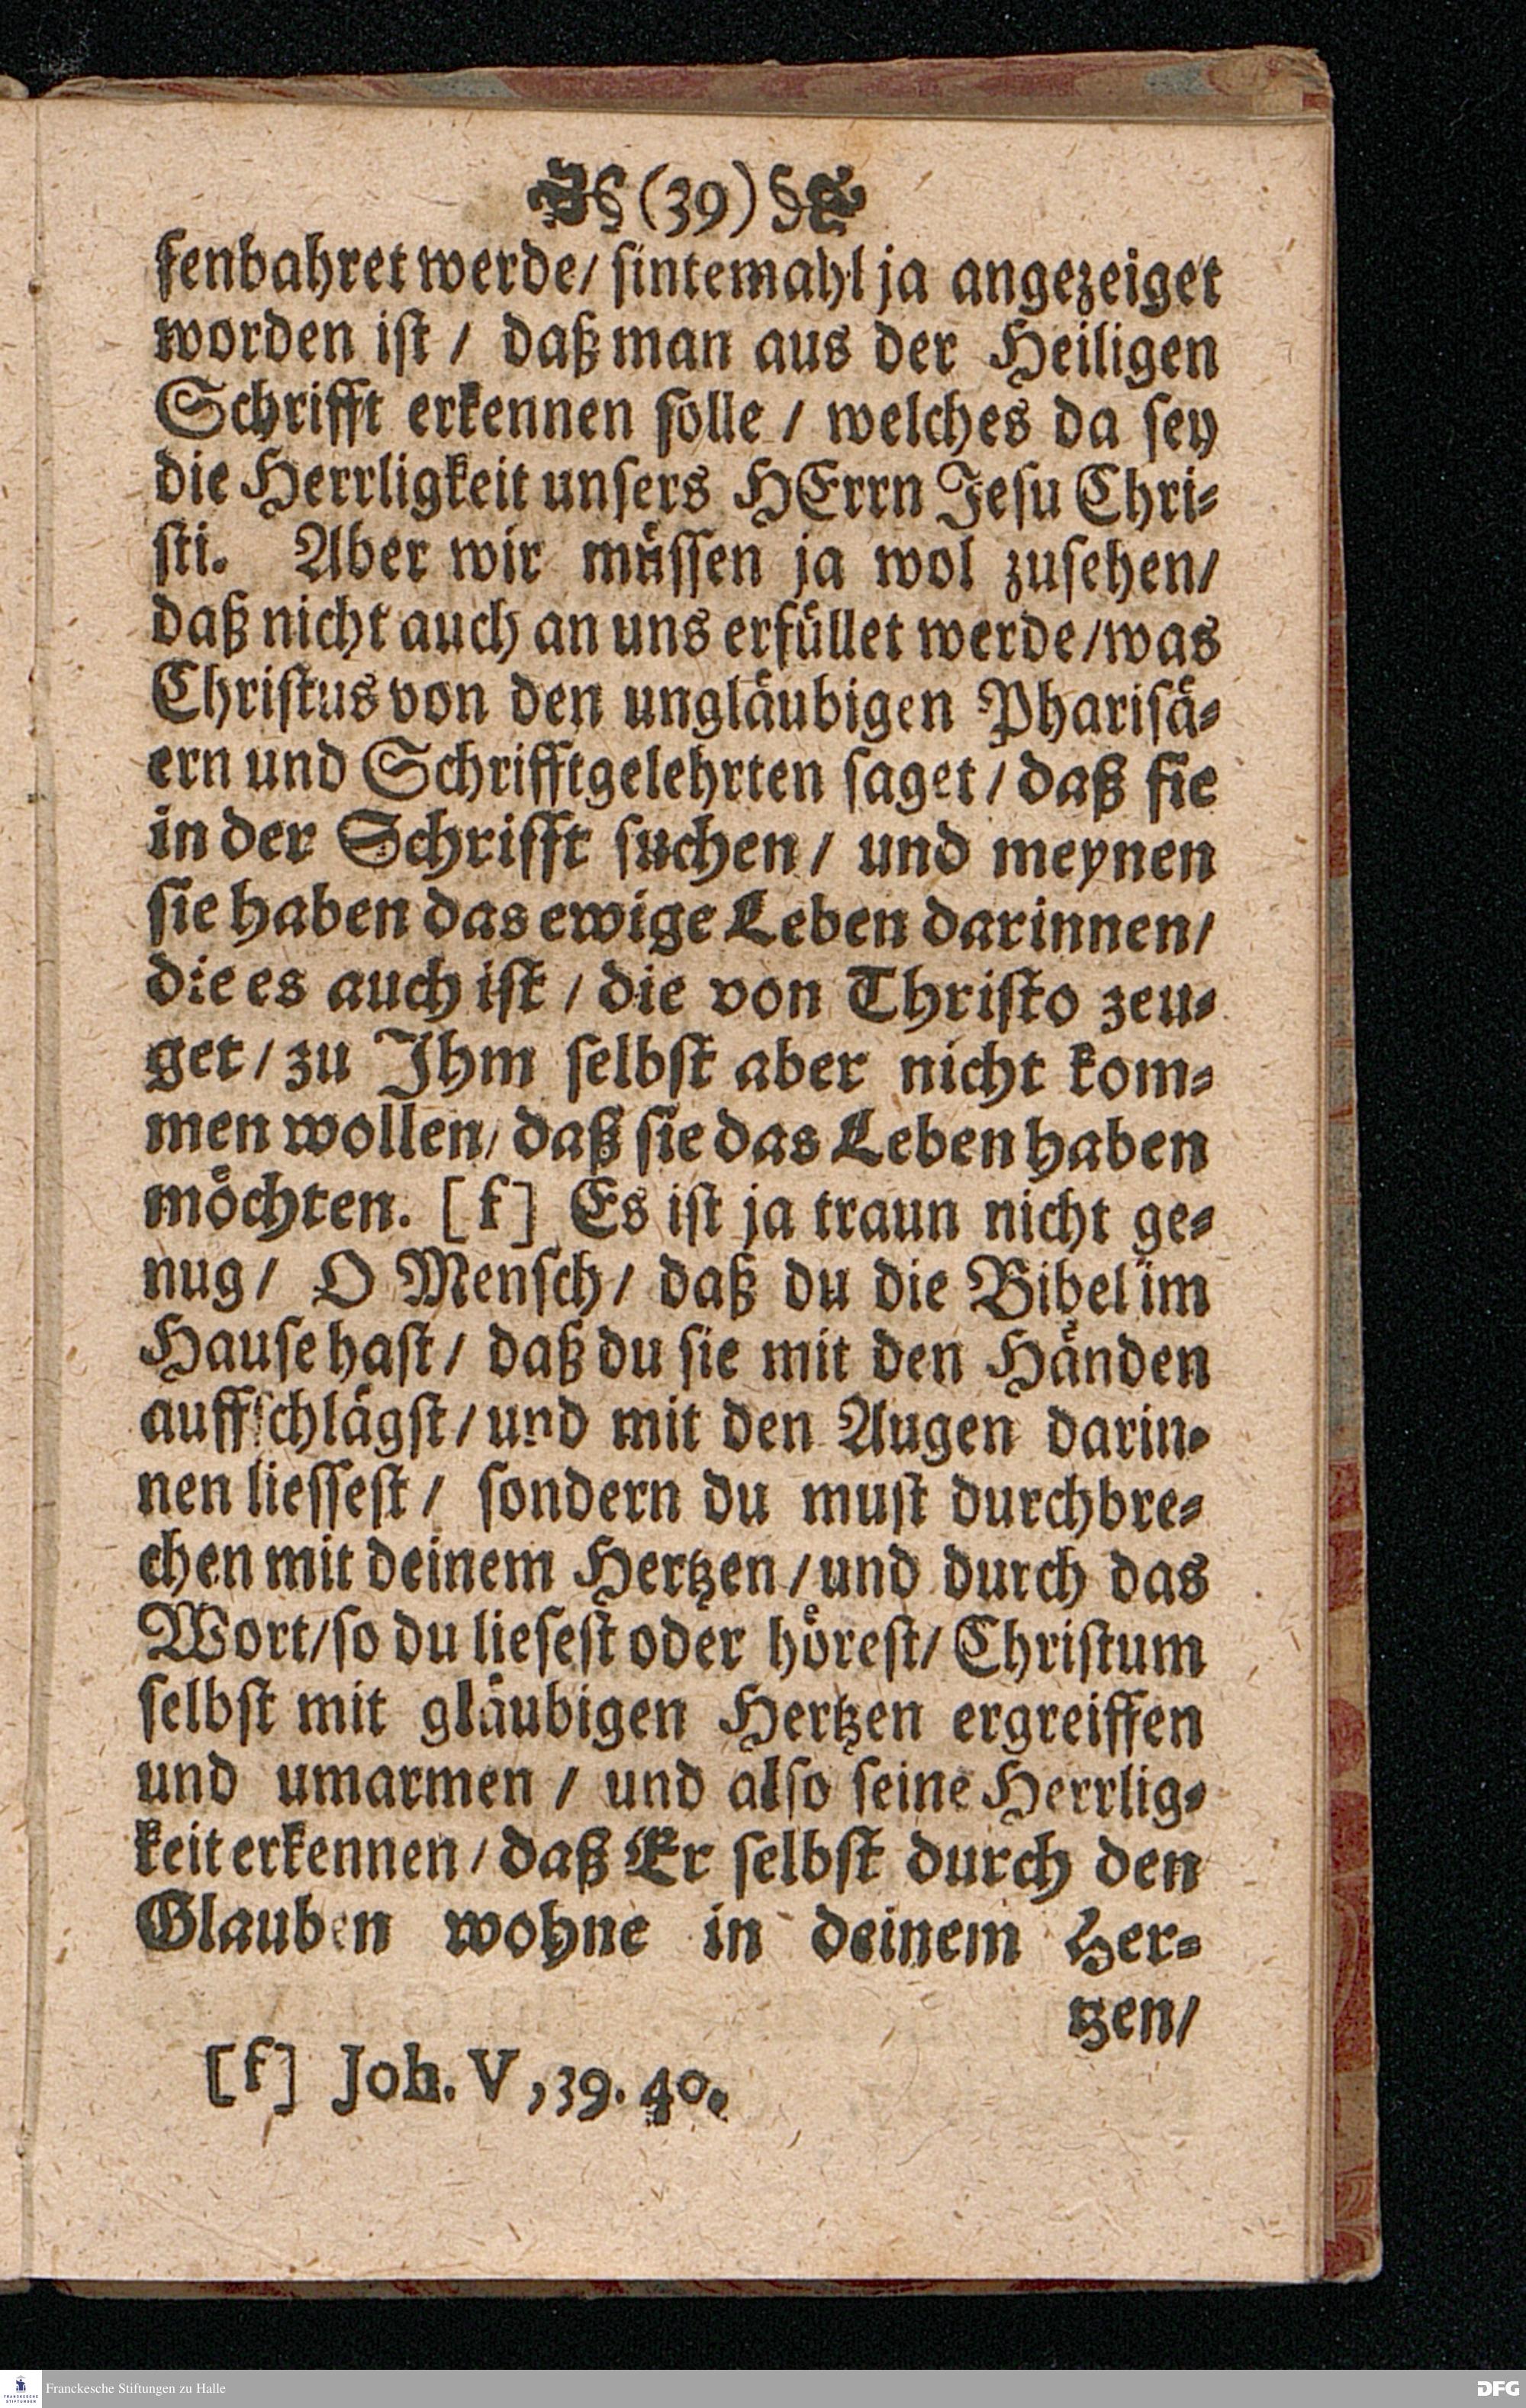 § (39) §
fenbahret werde/ sintemahl ja angezeiget
worden ist / daß man aus der Heiligen
Schrifft erkennen solle / welches da sey
die Herrligkeit unsers HErrn Jesu Chri-
sti. Aber wir müssen ja wol zusehen/
daß nicht auch an uns erfüllet werde/was
Christus von den ungläubigen Pharisä-
ern und Schrifftgelehrten saget / daß sie
in der Schrifft suchen / und meynen
sie haben das ewige Leben darinnen/
die es auch ist / die von Christo zeu-
get / zu Ihm selbst aber nicht kom-
men wollen/ daß sie das Leben haben
möchten. [f] Es ist ja traun nicht ge-
nug/ O Mensch/ daß du die Bibel im
Hause hast/ daß du sie mit den Händen
auffschlägst/und mit den Augen darin-
nen liessest / sondern du must durchbre-
chen mit deinem Hertzen/und durch das
Wort/so du liesest oder hörest/ Christum
selbst mit gläubigen Hertzen ergreiffen
und umarmen / und also seine Herrlig-
keit erkennen/daß Er selbst durch den
Glauben wohne in deinem Her-
tzen/
[f] Joh. V, 39. 40.
FRANCKESCHE STIFTUNGEN
Franckesche Stiftungen zu Halle
DFG